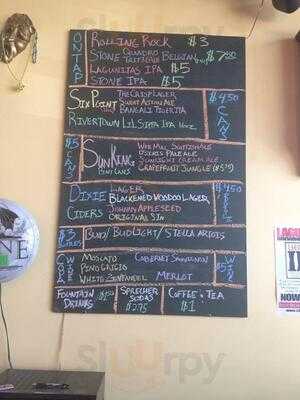 ON TAP
Rolling Rock $3
Stone Quadro Triticale Belgian $7.50
Lagunitas IPA $5
Stone IPA $5
Six Point The Crisp Lager
Sweet Action Ale
Bengali Tiger IPA
Rivertown Lil Sippa IPA 16oz
$4.50 CANS
$5 CANS
Sun King Pint Cans
Wee Mac Scottish Ale
Osiris Pale Ale
Sunlight Cream Ale
Grapefruit Jungle ($5.75)
Dixie Lager
Blackened Voodoo Lager
Ciders Johnny Appleseed
Original Sin
$4.50
$3 Bottles
Bud/Bud Light/Stella Artois
Moscato Cabernet Sauvignon
Pino Grigio
White Zinfandel Merlot
Fountain Drinks
Sprecher Sodas $2.75
Coffee & Tea $1